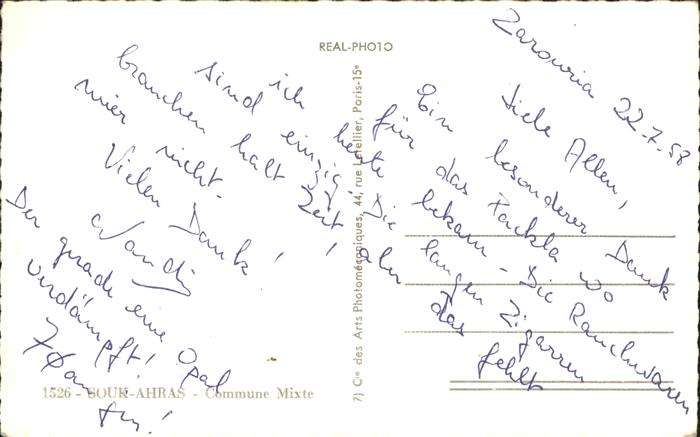 REAL-PHOTO
Zarouria 22.7.58
Liebe Allen,
Ein besonderer Dank
für das Packla wo
ich heute bekam - Die Rauchwaren
sind einzig. Die langen Zigarren
brauchen halt Zeit, aber das fehlt
mier nicht.
Vielen Dank!
Der gerade eine Opal
verdämpft!
7) Cie des Arts Photomécaniques, 44, rue Letellier, Paris-15e
1526 - SOUK-AHRAS - Commune Mixte